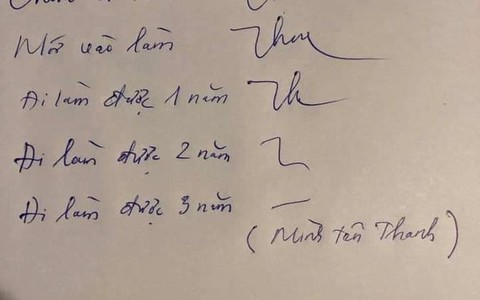 Mới vào làm
Đi làm được 1 năm
Đi làm được 2 năm
Đi làm được 3 năm
( Mình tên Thanh )